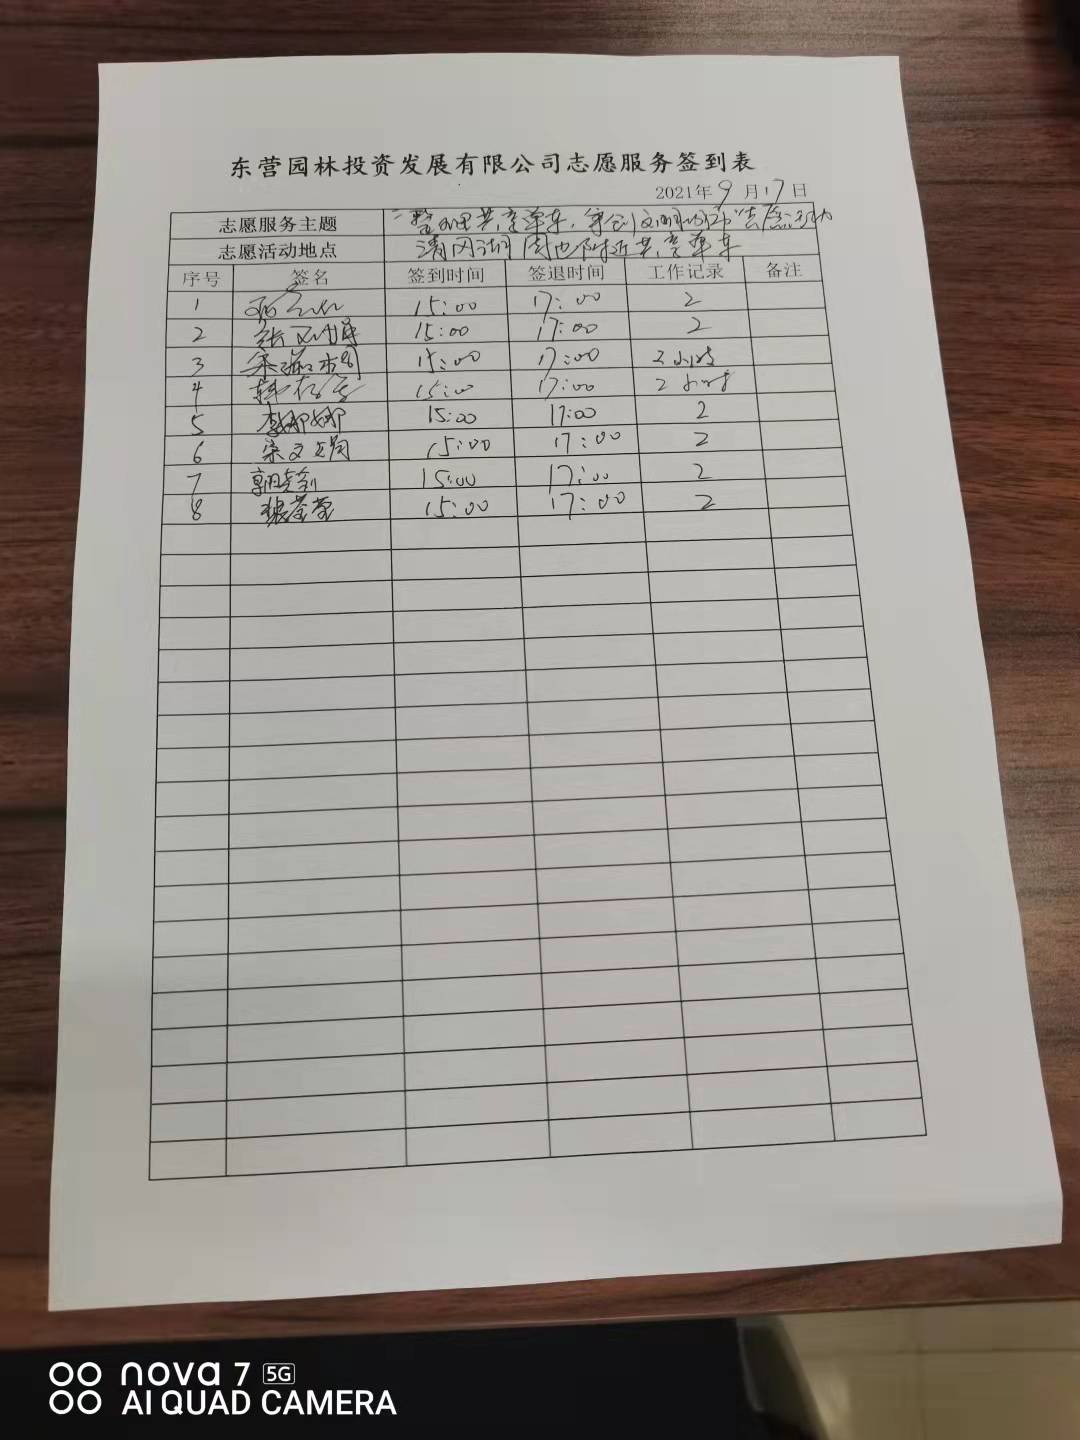 东营园林投资发展有限公司志愿服务签到表
2021年9月17日
志愿服务主题 "整理共享单车,争创文明城市"志愿活动
志愿活动地点 清风湖周边附近共享单车
序号 签名 签到时间 签退时间 工作记录 备注
1 15:00 17:00 2
2 张 15:00 17:00 2
3 宋 15:00 17:00 2小时
4 韩 15:00 17:00 2小时
5 李娜娜 15:00 17:00 2
6 宋文娟 15:00 17:00 2
7 15:00 17:00 2
8 15:00 17:00 2
nova 7 5G
AI QUAD CAMERA